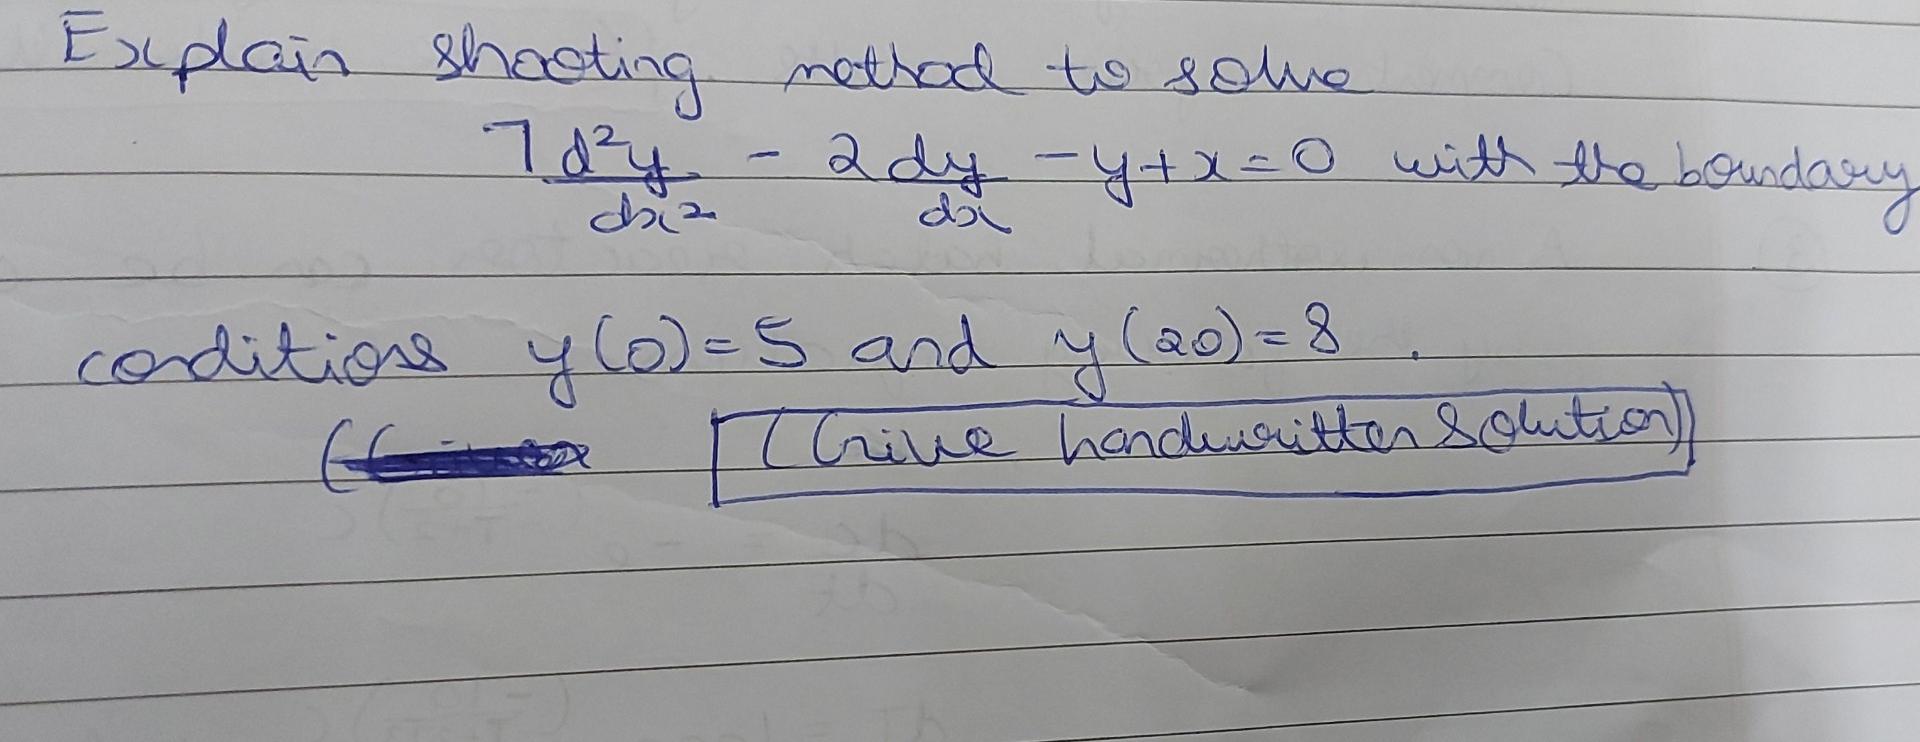 Explain shooting method to solve
7 d²y/dx² - 2 dy/dx - y + x = 0 with the boundary
conditions y(0) = 5 and y(20) = 8 .
[(Give handwritten solution)]